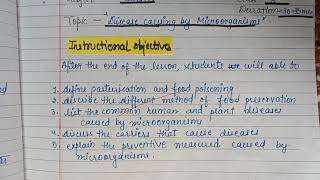 Duration-30-35min
Topic - "Disease causing by Microorganisms"
Instructional objectives
After the end of the lesson, students will able to
1. define pasteurisation and food poisoning
2. discuss the different method of food preservation
3. list the common human and plant diseases
caused by microorganisms
4. discuss the carriers that cause diseases
5. explain the preventive measured caused by
microorganisms.